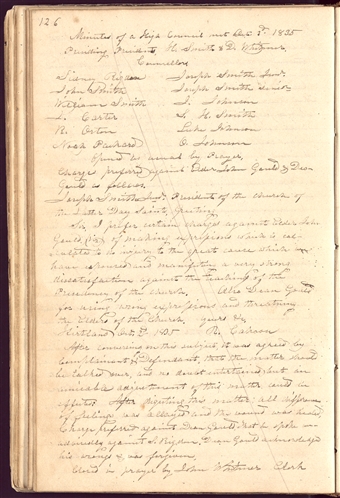 126
Minutes of a High Council met Sept. 1835
Presiding Presidents H. Smith & D. Whitmer
Councellors
Sidney Rigdon Joseph Smith Junr.
John Smith Joseph Smith Senr.
William Smith J. Johnson
J. Carter S. H. Smith
R. Orton Luke Johnson
Noah Packard O. Johnson
Opened as usual by Prayer,
Charge prefered against Elder John Gould & Dean
Gould as follows.
Joseph Smith Junr. President of the church of
the Latter Day Saints, Greeting.
Sir, I prefer certain charges against Elder John
Gould, of making expressions which is cal-
culated to do injury to the great cause which we
have espoused and manifesting a very strong
dissatisfaction against the teachings of the
Presidency of the church. Also Dean Gould
for using strong expressions and threatening
the Elders of the Church. yours &c
Kirtland 1835 R. Carreon
After conversing on this subject, it was agreed by
Complainant & Defendant, that the matter should
be talked over, and no doubt entertained but an
amicable adjustment of this matter could be
affected. After adjusting this matter, all difference
of feelings was allayed and the wound was healed.
Charge prefered against Dean Gould that he spoke un-
advisedly against S. Rigdon, Dean Gould acknowledged
his wrongs & was forgiven,
Closed in prayer by John Whitmer Clerk